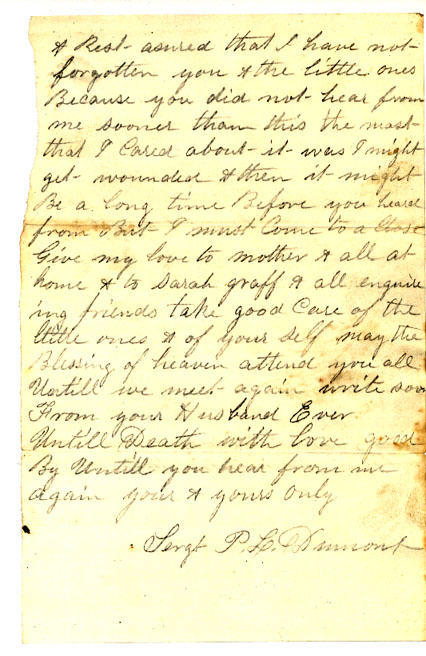 & Rest- assured that I have not-
forgotten you & the little ones
Because you did not- hear from
me sooner than this the most-
that I Cared about- it- was I might
get- wounded & then it- might
Be a Long time Before you heard
from But I must Come to a Close
Give my love to mother & all at
home & to Sarah graff & all enquire
ing friends take good Care of the
little ones & of your self may the
Blessing of heaven attend you all
Untill we meet again write soon
From your Husband Ever
Untill Death with love good
By Untill you hear from me
again your & yours Only
Sergt P. L. Dumont